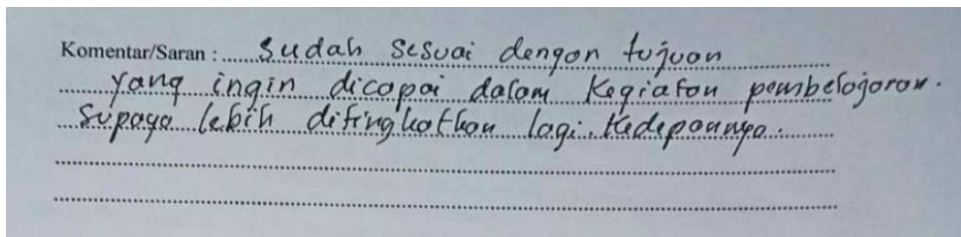 Komentar/Saran : Sudah sesuai dengan tujuan
yang ingin dicapai dalam kegiatan pembelajaran.
Supaya lebih ditingkatkan lagi, kedepannya.